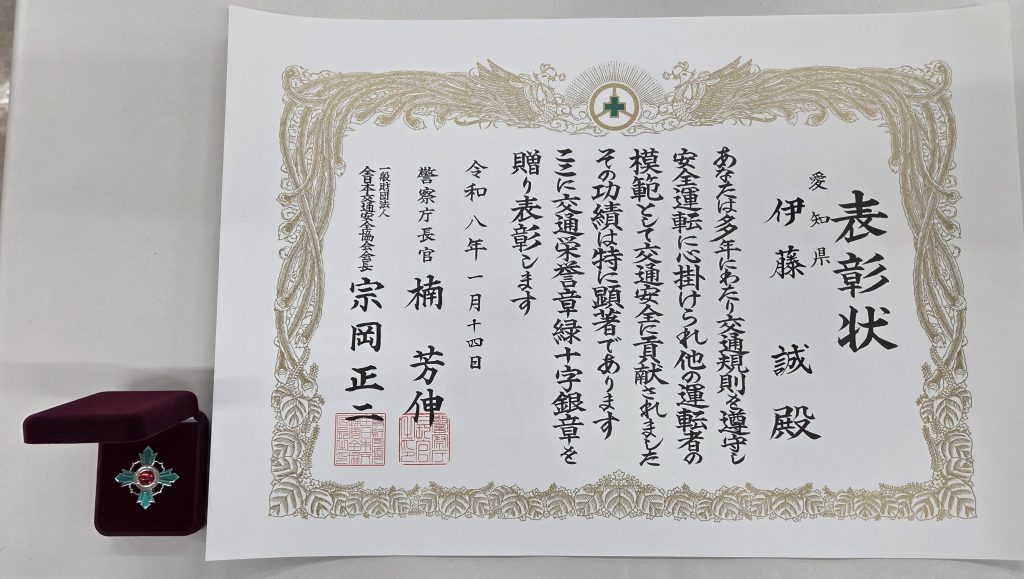 表彰状
愛知県
伊藤 誠 殿
あなたは多年にわたり交通規則を遵守し
安全運転に心掛けられ他の運転者の
模範として交通安全に貢献されました
その功績は特に顕著であります
ここに交通栄誉章緑十字銀章を
贈り表彰します
令和八年一月十四日
警察庁長官 楠 芳伸
一般財団法人
全日本交通安全協会会長 宗岡正二